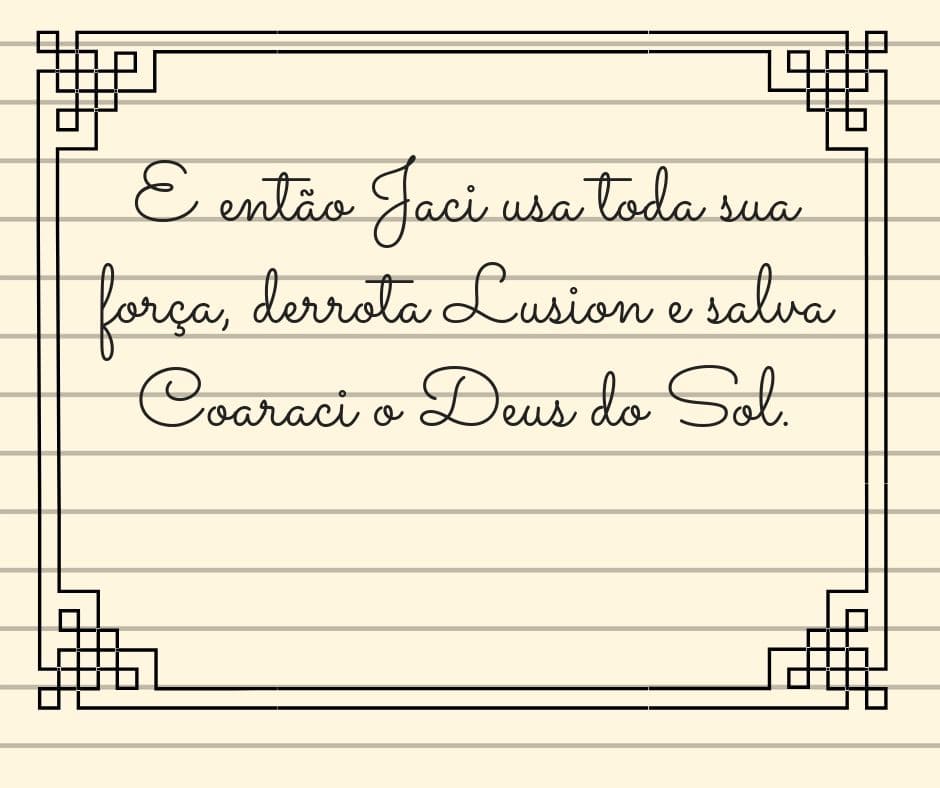 E então Jaci usa toda sua
força, derrota Lusion e salva
Coaraci o Deus do Sol.